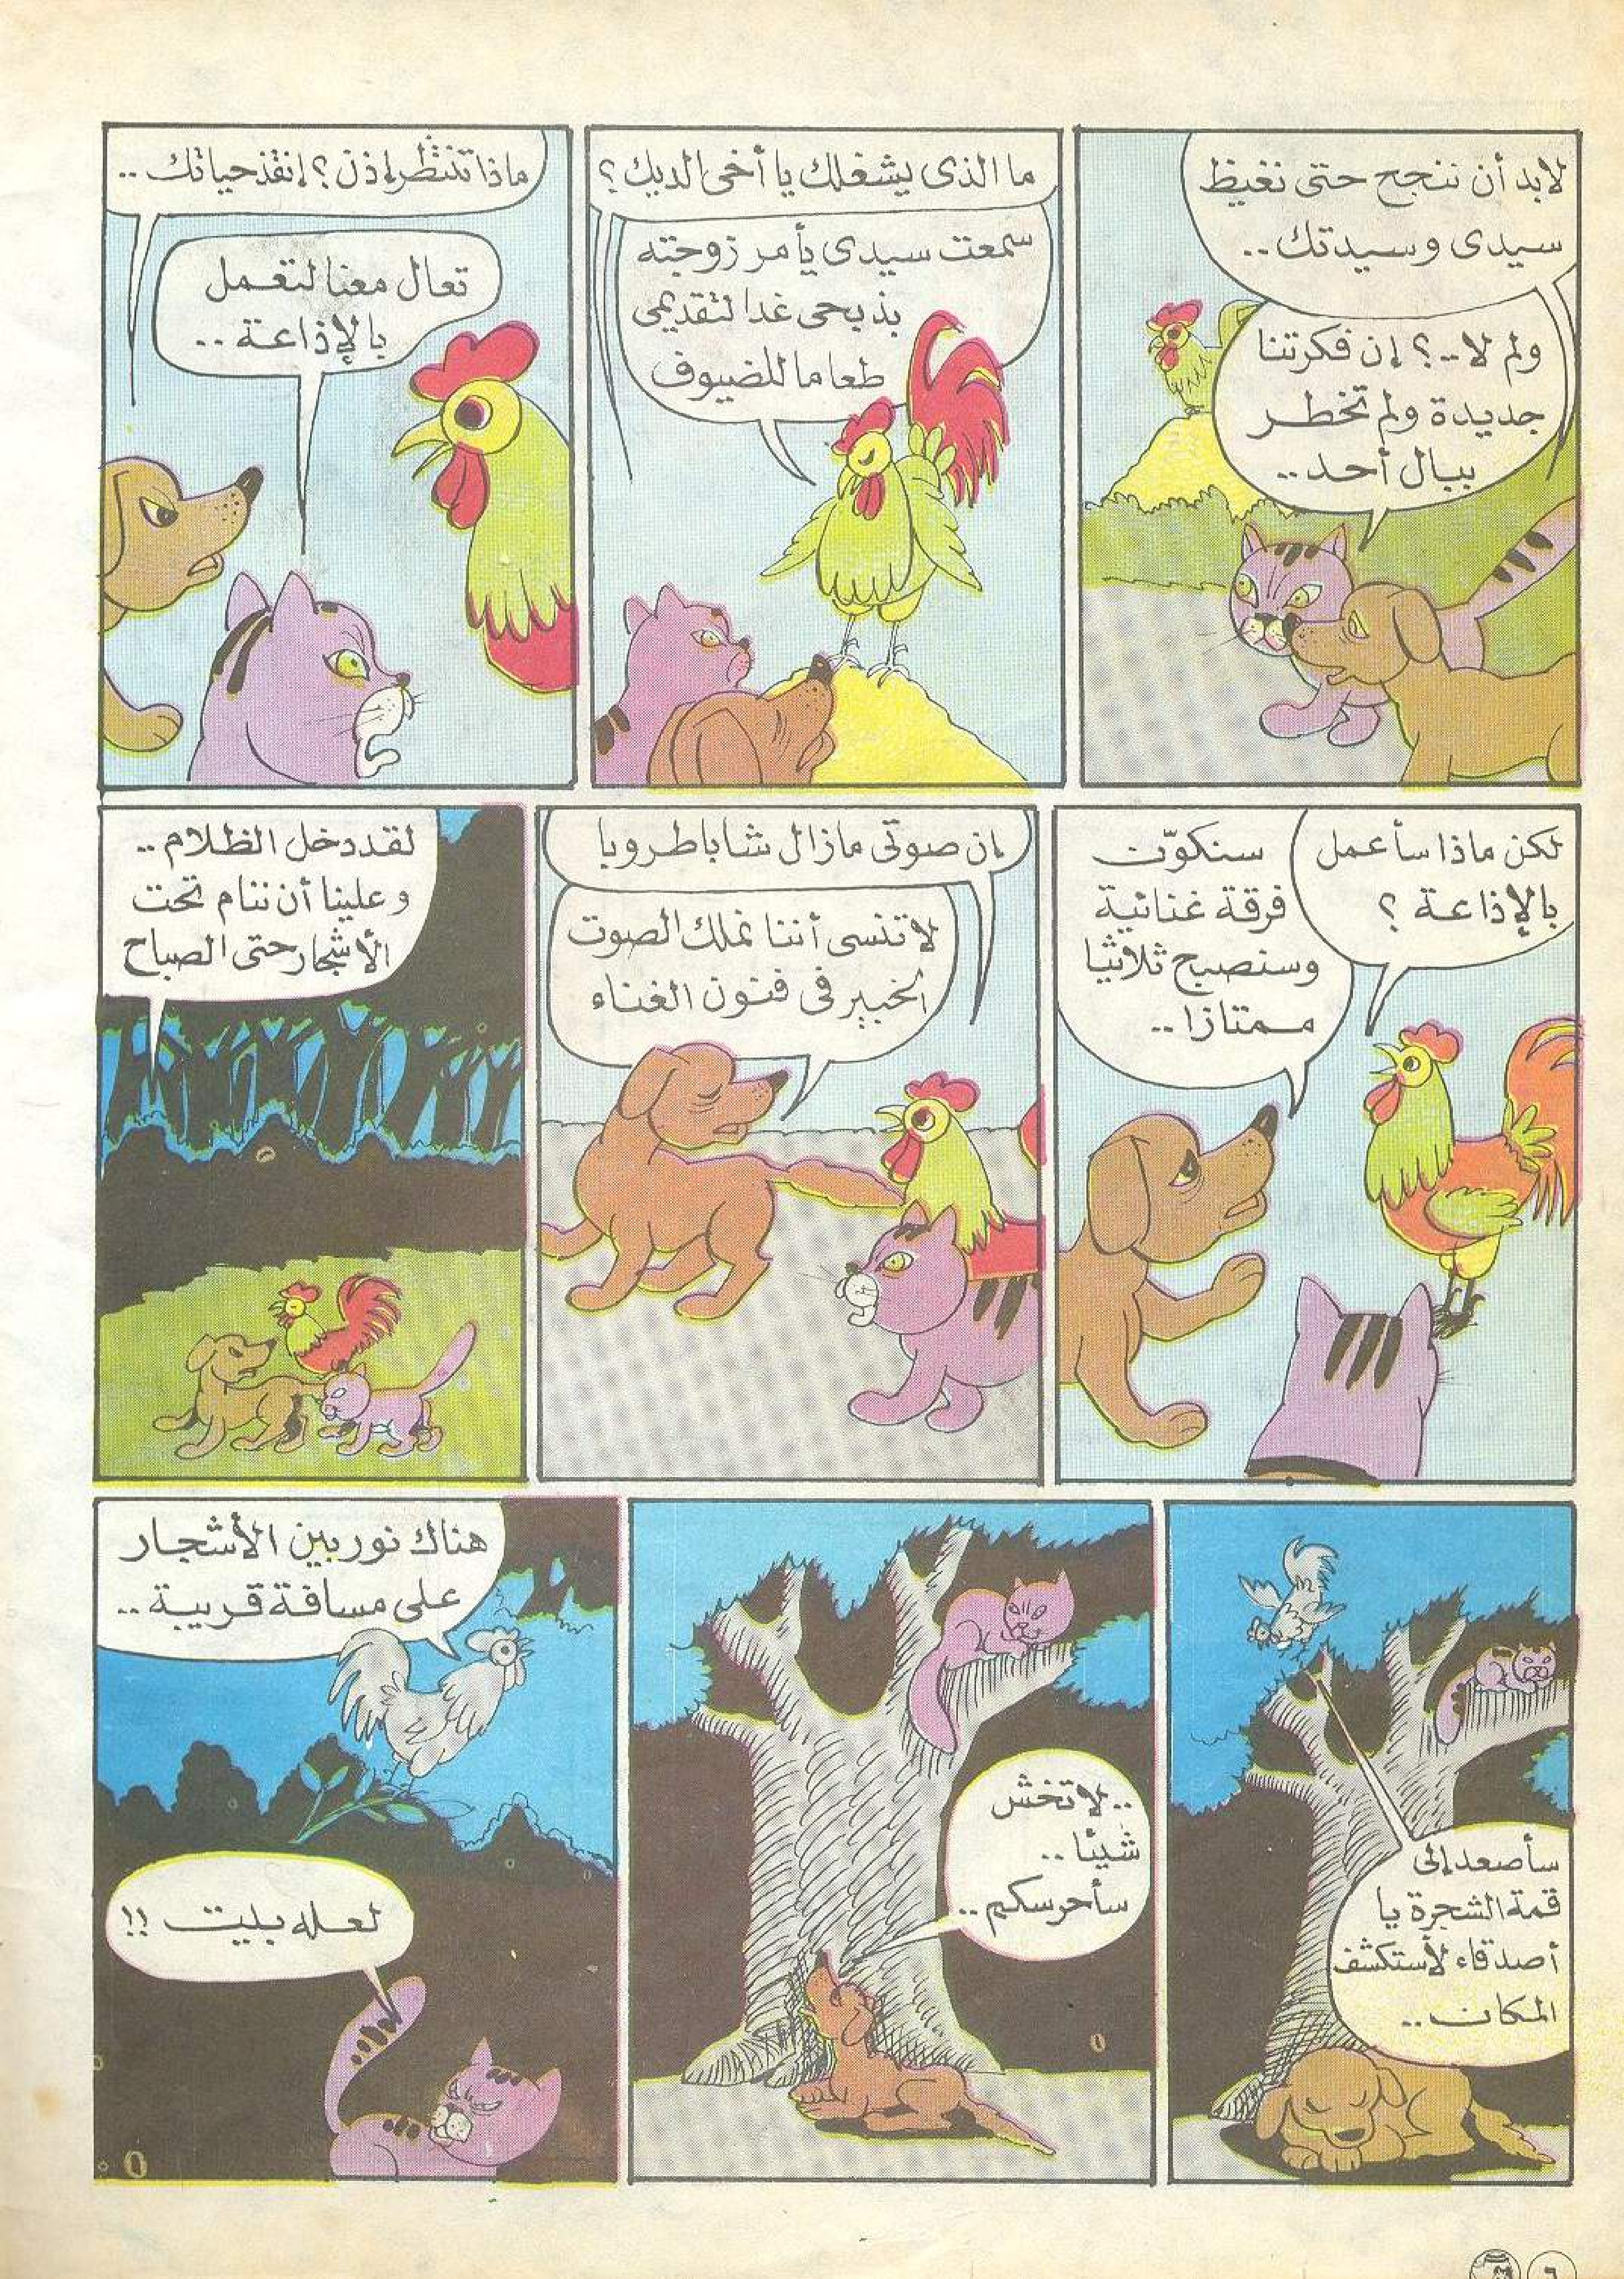 لابد أن ننجح حتى نغيظ
سيدى وسيدتك..
ولم لا..؟ إن فكرتنا
جديدة ولم تخطر
ببال أحد..
ما الذى يشغلك يا أخى الديك؟
سمعت سيدى يأمر زوجته
بذبحى غدا لتقديمى
طعاما للضيوف
ماذا تنتظر إذن؟ إنقذ حياتك..
تعال معنا لتعمل
بالإذاعة..
لكن ماذا سأعمل
بالإذاعة؟
سنكوّن
فرقة غنائية
وسنصبح ثلاثيا
ممتازا..
إن صوتى مازال شابا طروبا
لا تنسى أننا نملك الصوت
الخبير فى فنون الغناء
لقد دخل الظلام..
وعلينا أن ننام تحت
الأشجار حتى الصباح
سأصعد إلى
قمة الشجرة يا
أصدقاء لأستكشف
المكان..
..لا تخش
شيئا..
سأحرسكم..
هناك نور بين الأشجار
على مسافة قريبة..
لعله بيت!!
٦